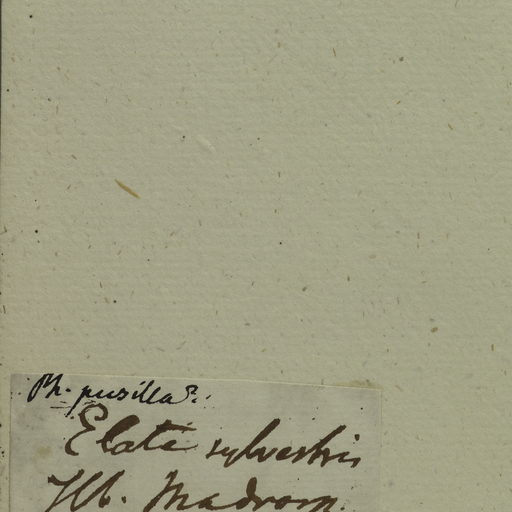 Ph. pusilla?.
Elate sylvestris
Hb. Madrasp.